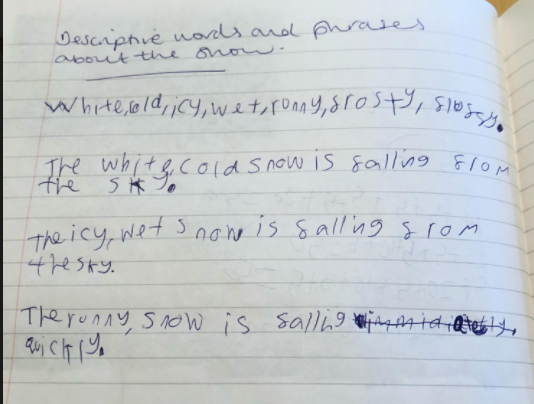 Descriptive words and phrases
about the snow.
White,cold,icy,wet,runny,frosty,
The white,cold snow is falling from
the sky.
The icy,wet snow is falling from
the sky.
The runny, snow is falling immidiately,
quickly.